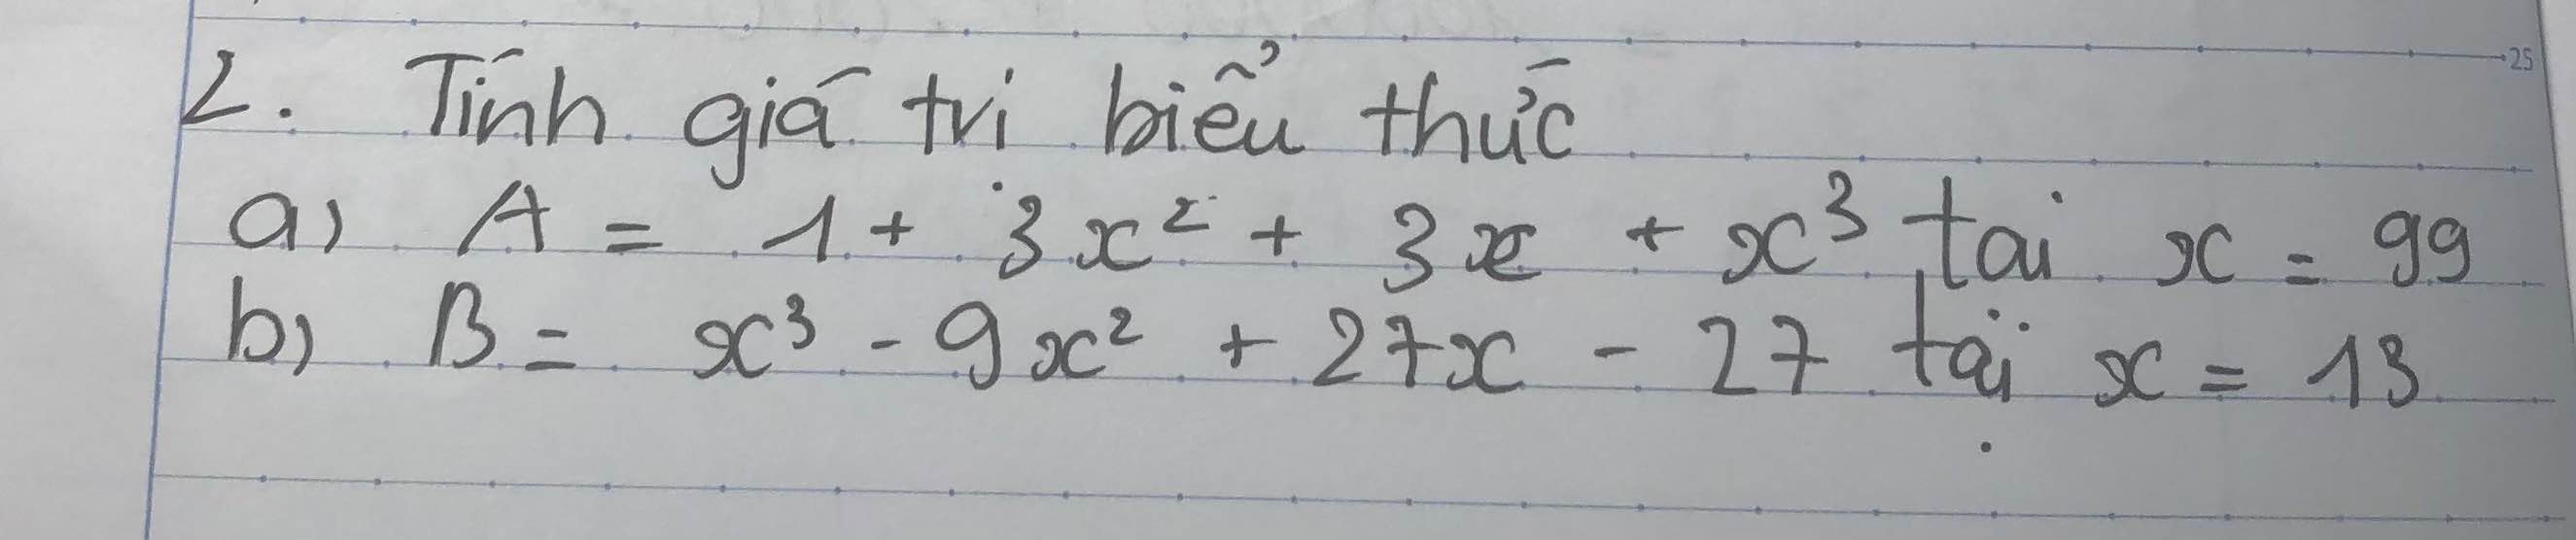 25
2. Tính giá trị biểu thức
a) A = 1 + 3x² + 3x + x³ tại x = 99
b) B = x³ - 9x² + 27x - 27 tại x = 13